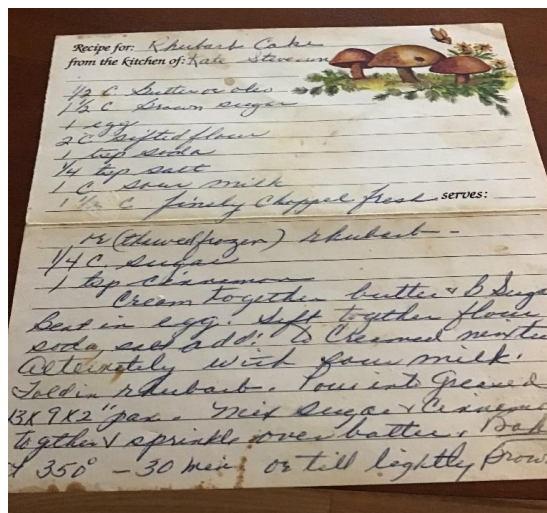 Recipe for: Rhubarb Cake
from the kitchen of: Kate Stevenson
1/2 C Butter or oleo
1 1/2 C Brown sugar
1 egg
2 C sifted flour
1 tsp soda
1/4 tsp salt
1 C sour milk
1 1/2 C finely chopped fresh serves:
or (thawed frozen) rhubarb -
1/4 C sugar
1 tsp cinnamon
Cream together butter & B Suga
Beat in egg. Sift together flour
soda, add to Creamed
alternately with sour milk.
Fold in rhubarb. Pour into Greased
13x9x2" pan. Mix sugar & Cinnamo
together & sprinkle over batter. Bak
350° - 30 min or till lightly brow